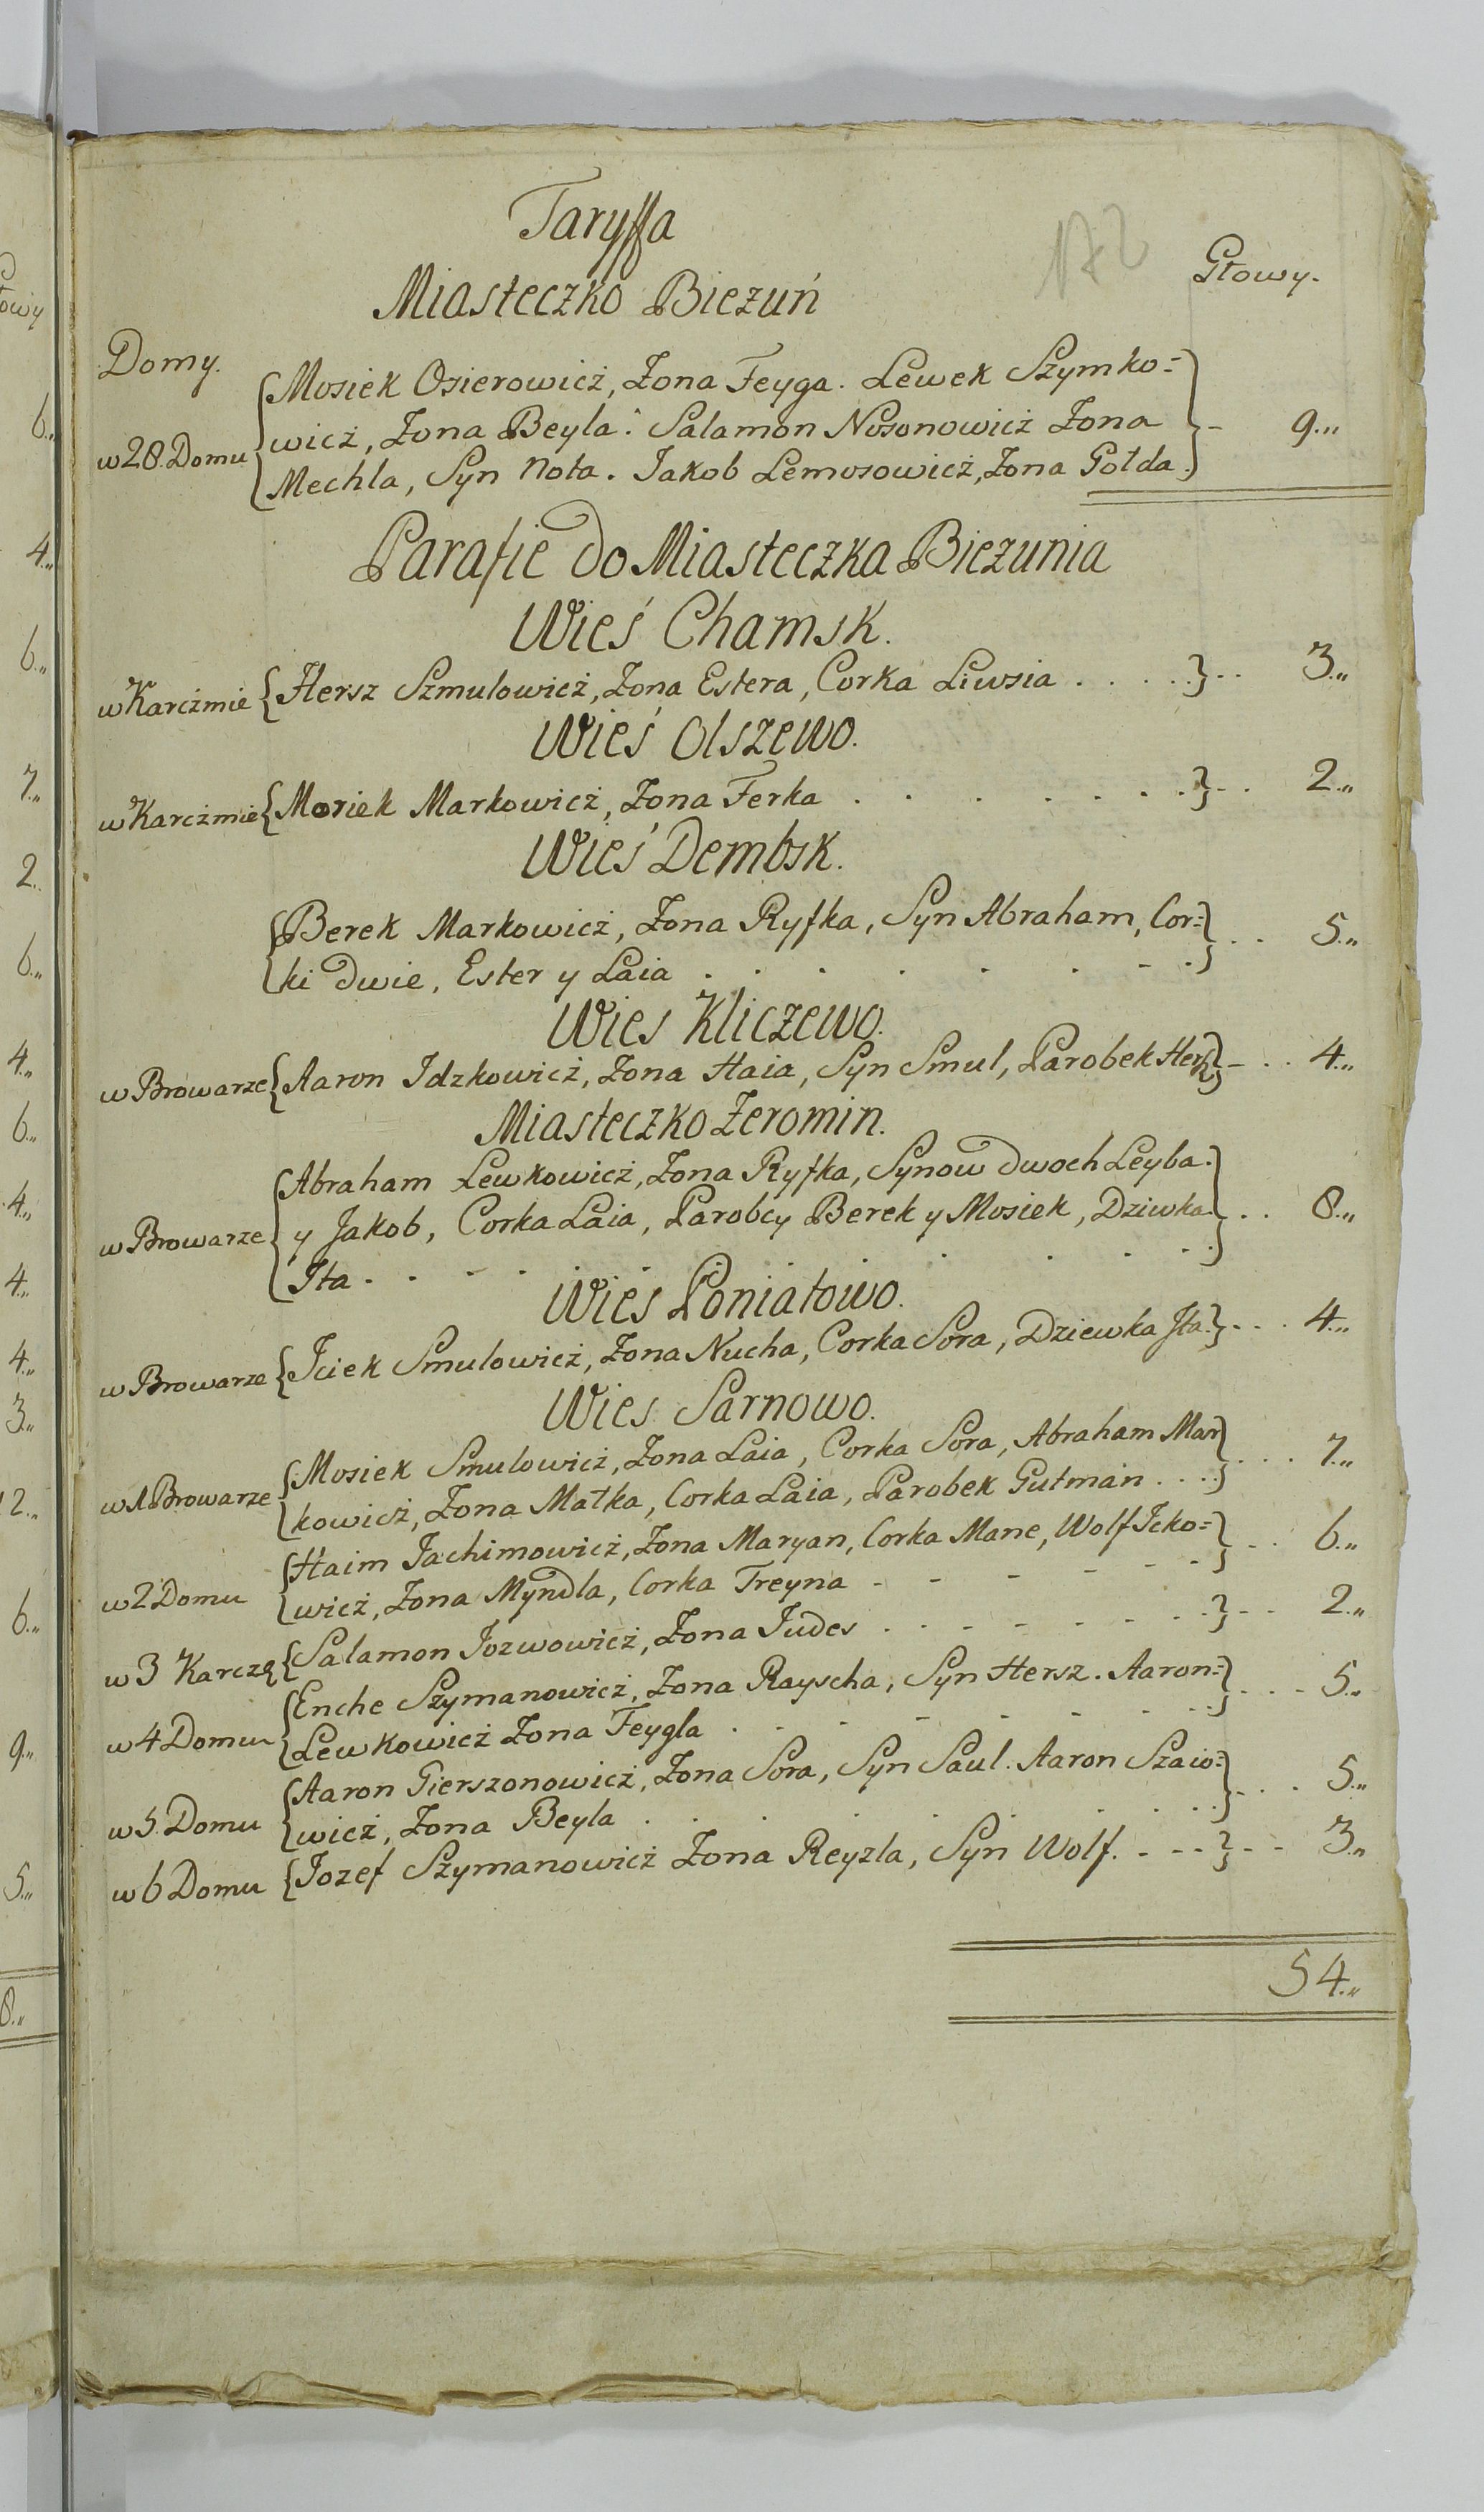 Taryffa
172
Głowy.
Miasteczko Biezuń
Domy.
w 28. Domu {Mosiek Osierowicż, Zona Feyga. Lewek Szymko=
wicż, Zona Beyla: Salamon Nosonowicż Zona
Mechla, Syn Nota. Jakob Lemosowicż, Zona Gołda.} - 9.„
Parafie do Miasteczka Biezunia
Wieś Chamsk.
w Karcżmie {Hersz Szmulowicż, Zona Estera, Corka Liwsia . . . . .} . . 3.„
Wieś Olszewo.
w Karcżmie {Moriek Markowicż, Zona Ferka . . . . . . . .} . . 2.„
Wieś Dembsk.
{Berek Markowicż, Zona Ryfka, Syn Abraham, Cor=
ki dwie, Ester y Laia . . . . . . - .} . . 5.„
Wies Kliczewo.
w Browarze {Aaron Idzkowicż, Zona Haia, Syn Smul, Parobek Hersz} - . . 4.„
Miasteczko Zeromin.
w Browarze {Abraham Lewkowicż, Zona Ryfka, Synow dwoch Leyba.
y Jakob, Corka Laia, Parobcy Berek y Mosiek, Dziwka
Ita . . - - . . . . . . - .} . . 8.„
Wieś Poniatowo.
w Browarze {Iciek Smulowicż, Zona Nucha, Corka Sora, Dziewka Ita.} . . . 4.„
Wies Sarnowo.
w 1. Browarze {Mosiek Smulowicż, Zona Laia, Corka Sora, Abraham Mar
kowicż, Zona Matka, Corka Laia, Parobek Gutman . . . .} . . . . 7.„
w 2 Domu {Haim Jachimowicż, Zona Maryan, Corka Mane, Wolf Icko=
wicż, Zona Myndla, Corka Treyna - - - - - -} . . . 6.„
w 3 Karczę {Salamon Jozwowicż, Zona Judes . . . - . - . . .} - - 2.„
w 4 Domu {Enche Szymanowicż, Zona Rayscha, Syn Hersz. Aaron=
Lewkowicż Zona Feygla . - - - - . - . .} . . . 5.„
w 5. Domu {Aaron Gierszonowicż, Zona Sora, Syn Saul. Aaron Szaio=
wicż, Zona Beyla . . . . . . . . . .} . . . 5.„
w 6 Domu {Jozef Szymanowicż Zona Reyzla, Syn Wolf. - - -} - - 3.„
54.„